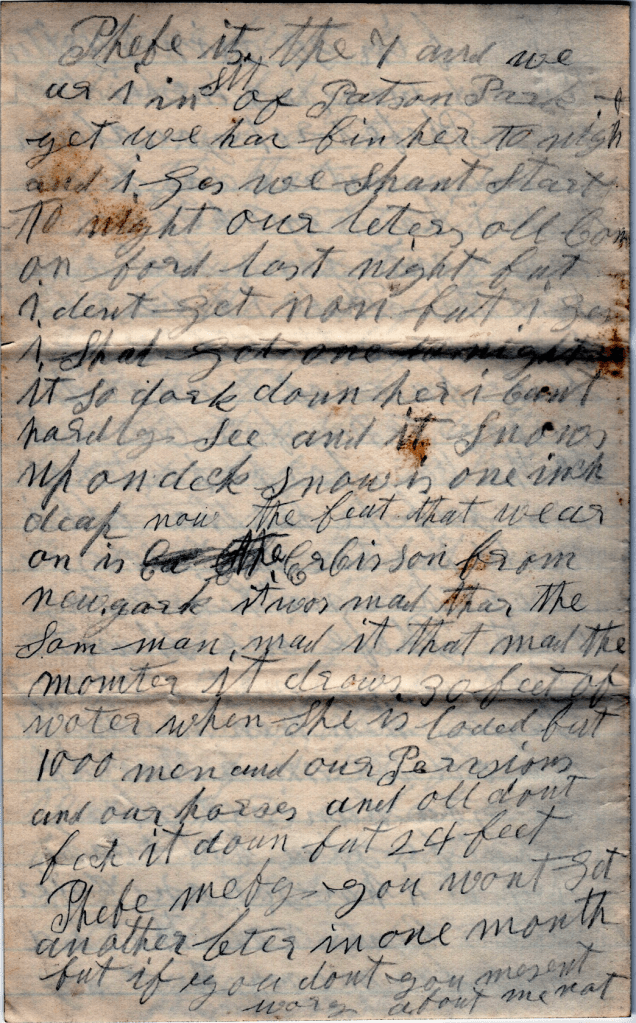 Phebe it the 7 and we
ar i in sit of Patson Park
yet we har bin her to nigh
and i ges we shant start
to night our leters all Com
on bord last night but
i dent get non but i ges
i shal get one to night
it so dark doun her i Cant
hardly see and it snows
up on deck snow is one inch
deap now the beat that we ar
on is the Erbisson from
newyark it was mad thar the
Sam man mad it that mad the
moniter it draws 30 feet of
water when she is loded but
1000 men and our
and our horses and all dont
it doun but 24 feet
Phebe meby you wont get
another leter in one month
but if you dont you mesent
wory about me not